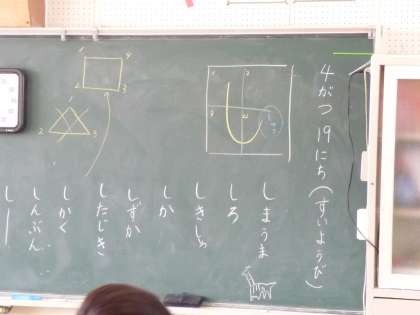 4がつ19にち(すいようび)
しまうま
しろ
しきし
しか
しずか
したじき
しかく
しんぶん
し
1 4
2 3
1
2 3
1 2
3 4